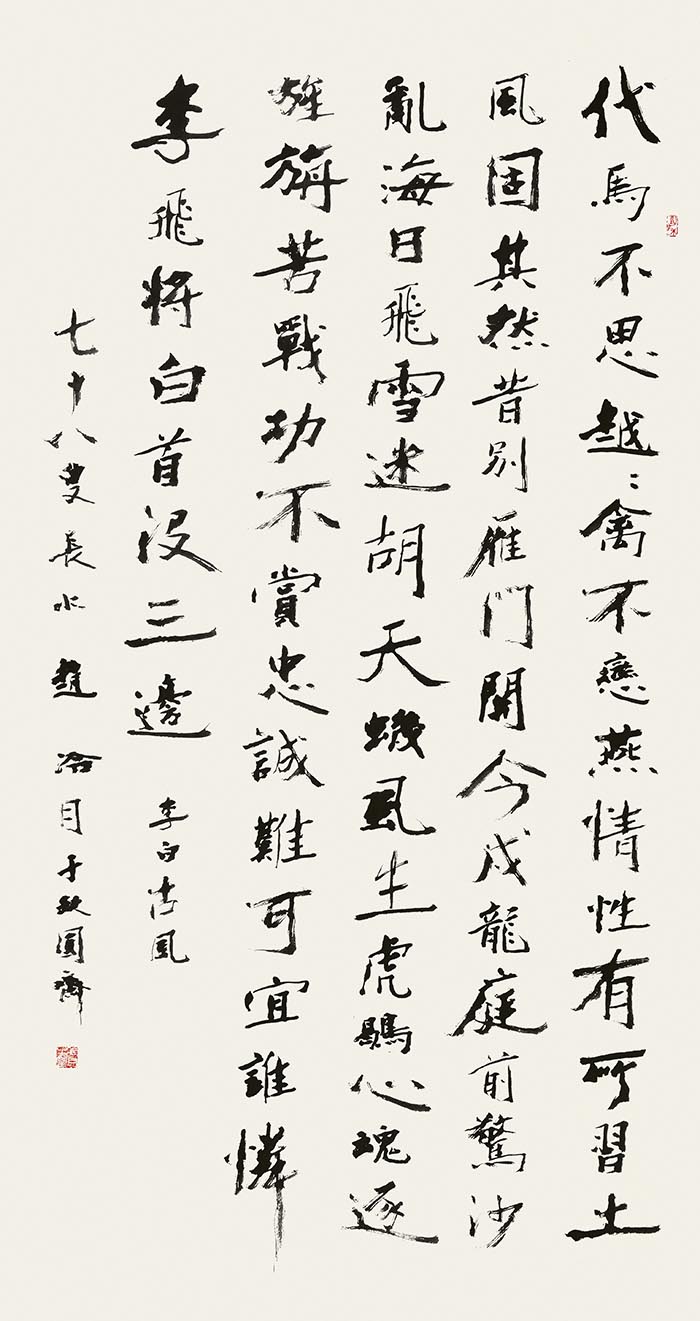 代馬不思越〻禽不戀燕情性有所習土
風固其然昔別雁門關今戍龍庭前驚沙
亂海日飛雪迷胡天蟣虱生虎鶡心魂逐
旌旃苦戰功不賞忠誠難可宜誰憐
李飛將白首没三邊 李白古風
七十八叟長水趙冷月于缺圓齋